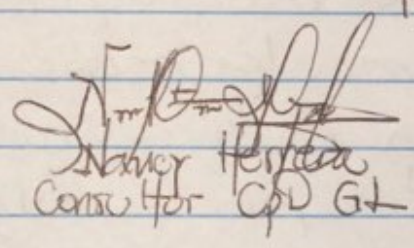 Nancy Herrera
Consultor CPD GL